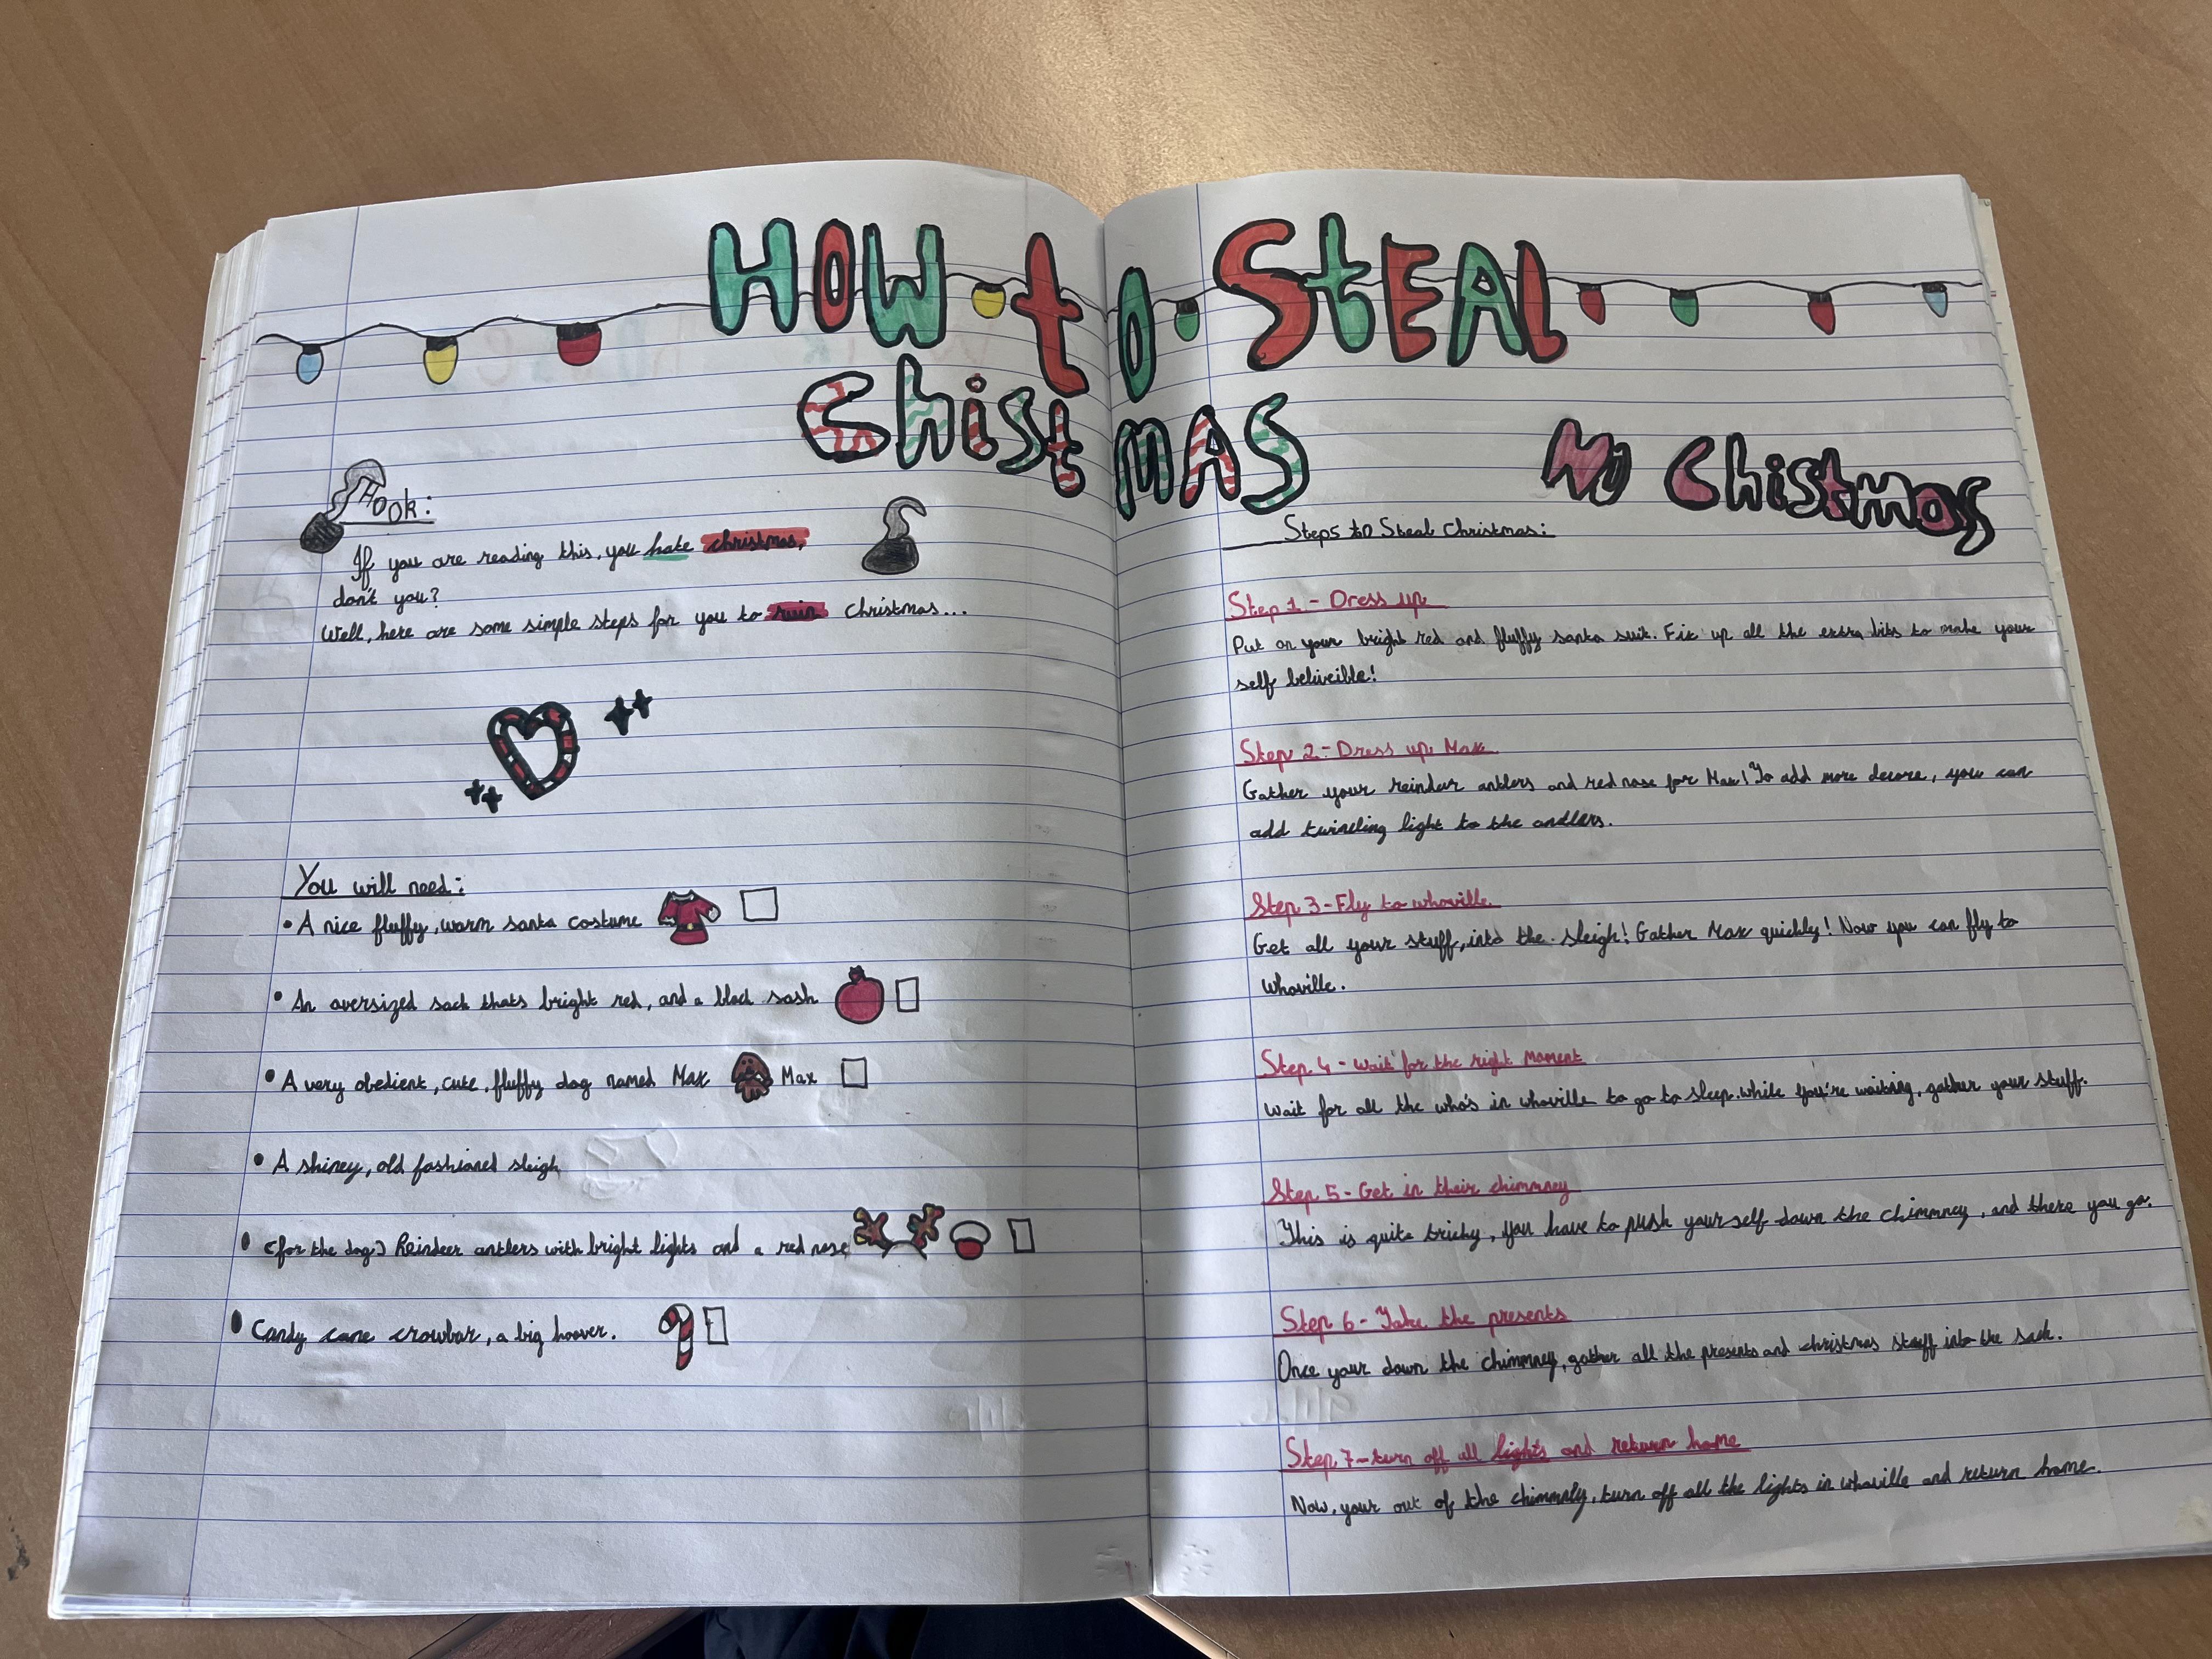 HOW tO StEAL
ChistMAS
Hook:
If you are reading this, you hate christmas,
don't you?
Well, here are some simple steps for you to ruin christmas...
You will need:
• A nice fluffy, warm santa costume
• An oversized sack thats bright red, and a black sash
• A very obedient, cute, fluffy dog named Max Max
• A shiney, old fashioned sleigh
• (for the dog) Reindeer antlers with bright lights and a red nose
• Candy cane crowbar, a big hoover.
No Chistmas
Steps to Steal Christmas:
Step 1 - Dress up
Put on your bright red and fluffy santa suit. Fix up all the extra bits to make your
self beliveible!
Step 2 - Dress up Max
Gather your reindeer antlers and red nose for Max! To add more decore, you can
add twincling light to the andlers.
Step 3 - Fly to whoville
Get all your stuff, into the sleigh! Gather Max quickly! Now you can fly to
whoville.
Step 4 - Wait for the right moment
Wait for all the who's in whoville to go to sleep. While you're waiting, gather your stuff.
Step 5 - Get in their chimmney
This is quite tricky, you have to push your self down the chimmney, and there you go.
Step 6 - Take the presents
Once your down the chimmney, gather all the presents and christmas stuff into the sack.
Step 7 - turn off all lights and return home
Now, your out of the chimmney, turn off all the lights in whoville and return home.